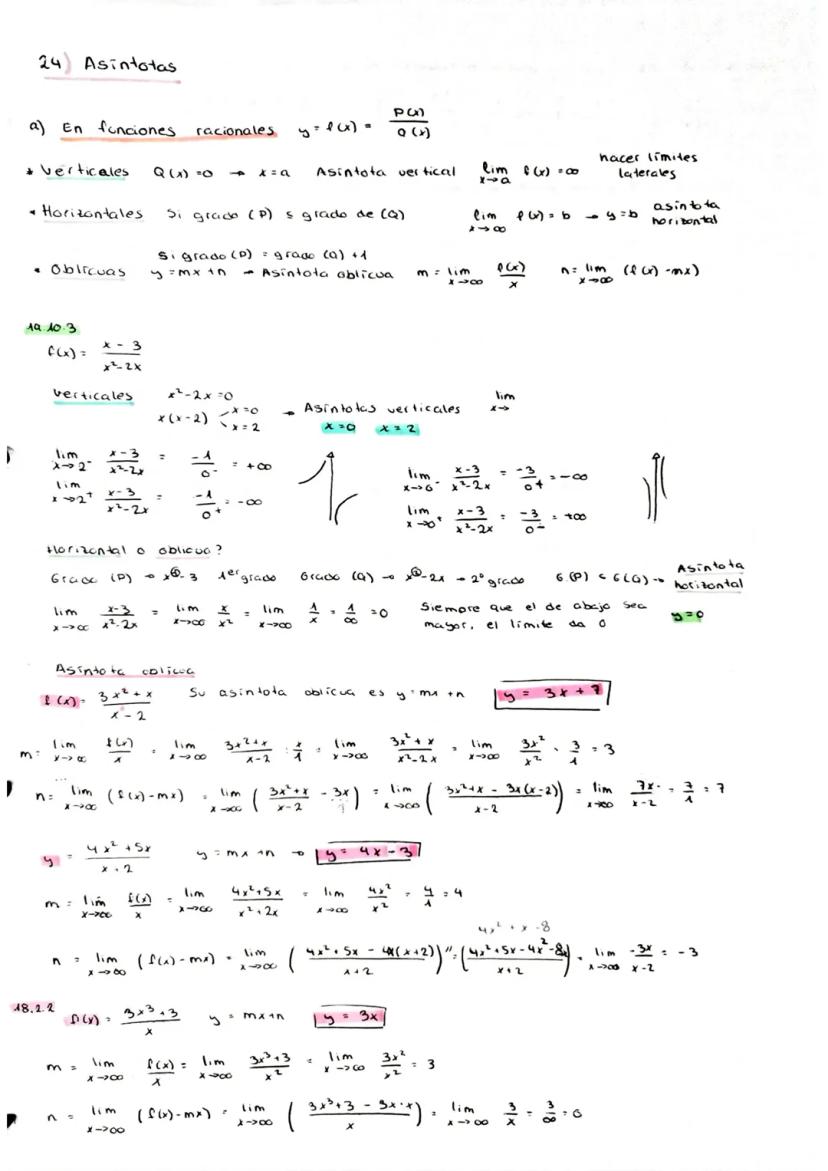 24) Asíntotas
a) En funciones racionales y = f(x) = P(x) / Q(x)
* Verticales Q(x) = 0 → x = a Asíntota vertical lim x→a f(x) = ∞ hacer límites laterales
• Horizontales Si grado (P) ≤ grado de (Q) lim x→∞ f(x) = b → y = b asíntota horizontal
Si grado (P) = grado (Q) + 1
• Oblicuas y = mx + n → Asíntota oblicua m = lim x→∞ f(x)/x n = lim x→∞ (f(x) - mx)
19.10.3
f(x) = x - 3 / x² - 2x
Verticales x² - 2x = 0 lim x→
x(x - 2) x = 0 x = 2 → Asíntotas verticales x = 0 x = 2
lim x→2⁻ x-3 / x²-2x = -1 / 0⁻ = +∞ lim x→0⁻ x-3 / x²-2x = -3 / 0+ = -∞
lim x→2⁺ x-3 / x²-2x = -1 / 0+ = -∞ lim x→0⁺ x-3 / x²-2x = -3 / 0⁻ = +∞
Horizontal o oblicua?
Grado (P) → x - 3 1er grado Grado (Q) → x² - 2x → 2º grado G(P) < G(Q) → Asíntota horizontal
lim x→∞ x-3 / x²-2x = lim x→∞ x / x² = lim x→∞ 1/x = 1/∞ = 0 Siempre que el de abajo sea mayor, el límite da 0 y = 0
Asíntota oblicua
f(x) = 3x² + x / x - 2 Su asíntota oblicua es y = mx + n y = 3x + 7
m = lim x→∞ f(x)/x = lim x→∞ 3x²+x / x-2 : x/1 = lim x→∞ 3x²+x / x²-2x = lim x→∞ 3x²/x² = 3/1 = 3
n = lim x→∞ (f(x) - mx) = lim x→∞ (3x²+x / x-2 - 3x) = lim x→∞ (3x²+x - 3x(x-2) / x-2) = lim x→∞ 7x / x-2 = 7/1 = 7
y = 4x² + 5x / x + 2 y = mx + n → y = 4x - 3
m = lim x→∞ f(x)/x = lim x→∞ 4x²+5x / x²+2x = lim x→∞ 4x²/x² = 4/1 = 4
4x² + x - 8
n = lim x→∞ (f(x) - mx) = lim x→∞ (4x² + 5x - 4x(x+2) / x+2) = (4x² + 5x - 4x² - 8x / x+2) = lim x→∞ -3x / x-2 = -3
18.2.2 f(x) = 3x³ + 3 / x y = mx + n y = 3x
m = lim x→∞ f(x)/x = lim x→∞ 3x³+3 / x² = lim x→∞ 3x²/x² = 3
n = lim x→∞ (f(x) - mx) = lim x→∞ (3x³ + 3 - 3x·x / x) = lim x→∞ 3/x = 3/∞ = 0